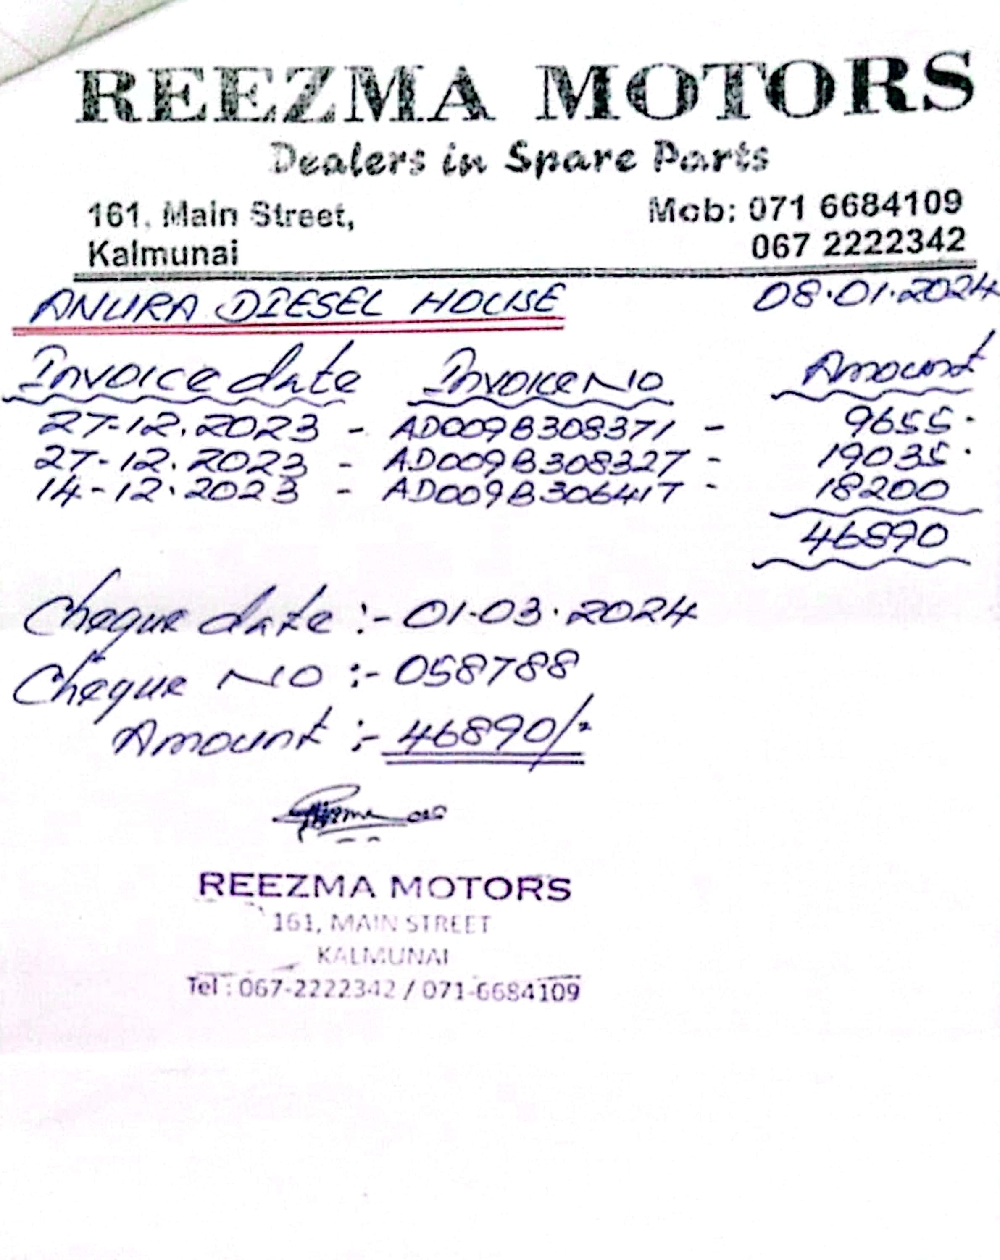 REEZMA MOTORS
Dealers in Spare Parts
161, Main Street, Mob: 071 6684109
Kalmunai 067 2222342
ANURA DIESEL HOUSE 08.01.2024
Invoice date Invoice No Amount
27-12.2023 - AD009B308371 - 9655.
27-12.2023 - AD009B308327 - 19035.
14-12.2023 - AD009B306417 - 18200
46890
Cheque date :- 01-03.2024
Cheque No :- 058788
Amount :- 46890/-
REEZMA MOTORS
161, MAIN STREET
KALMUNAI
Tel : 067-2222342 / 071-6684109